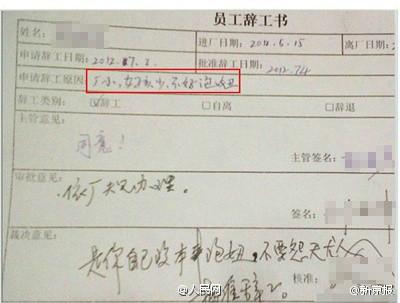 员工辞工书
姓名: 进厂日期: 2011.6.15 离厂日期:
申请辞工日期: 2012.7.2 批准辞工日期: 2012.7.4
申请辞工原因: 厂小,女孩少,不好泡妞
辞工类别: ☑辞工 □自离 □辞退
主管意见:
同意!
主管签名:
审批意见:
依厂规办理。
签名:
裁决意见:
是你自己没本事泡妞,不要怨天尤人
批准辞工。
核准:
@人民网 @新京报